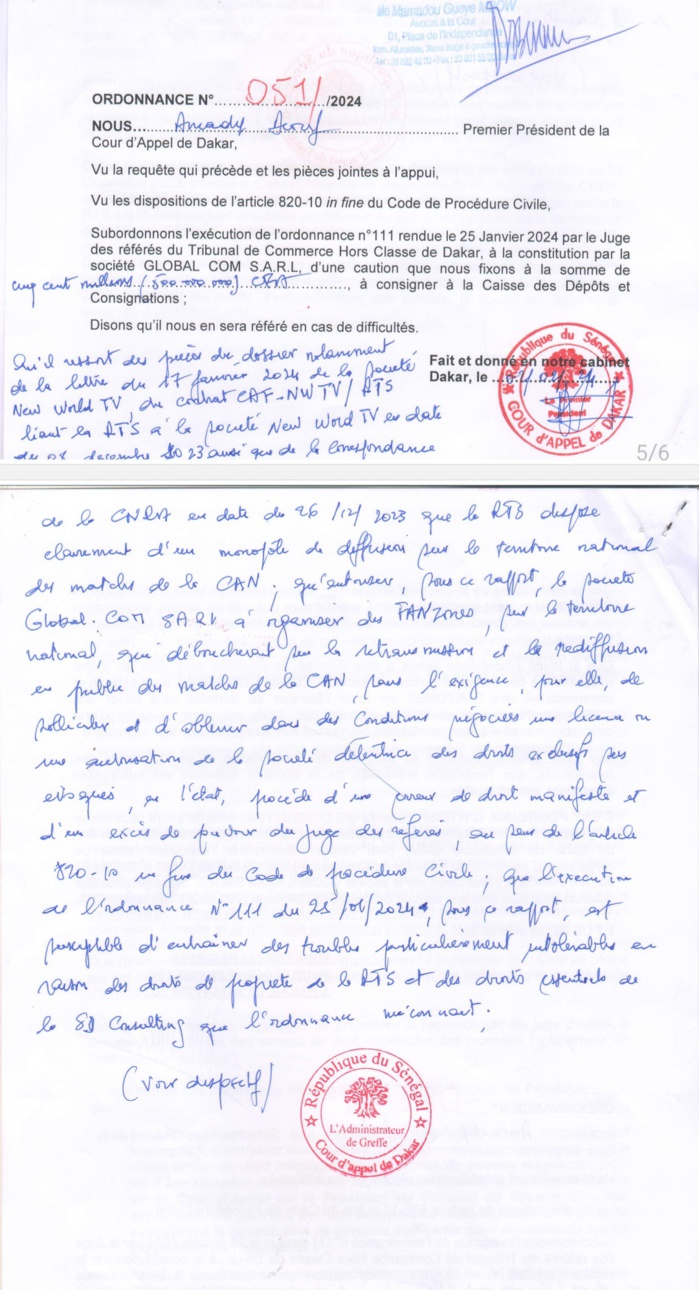 Me Mamadou Gueye MBOW
Avocat à la Cour
01, Place de l'Indépendance
ORDONNANCE N°......051/..../2024
NOUS...Amady Diouf........................ Premier Président de la
Cour d'Appel de Dakar,
Vu la requête qui précède et les pièces jointes à l'appui,
Vu les dispositions de l'article 820-10 in fine du Code de Procédure Civile,
Subordonnons l'exécution de l'ordonnance n°111 rendue le 25 Janvier 2024 par le Juge
des référés du Tribunal de Commerce Hors Classe de Dakar, à la constitution par la
société GLOBAL COM S.A.R.L, d'une caution que nous fixons à la somme de
cinq cent millions (500.000.000) CFA..........., à consigner à la Caisse des Dépôts et
Consignations ;
Disons qu'il nous en sera référé en cas de difficultés.
Qu'il ressort des pièces du dossier notamment
de la lettre du 17 janvier 2024 de la société
New World TV, du contrat CAF-NWTV/RTS
liant la RTS à la société New Word TV en date
du 08 decembre 2023 ainsi que de la correspondance
Fait et donné en notre cabinet
Dakar, le
République du Sénégal
Le Premier
Président
COUR d'APPEL de DAKAR
5/6
de la CNRA en date du 26/12/2023 que la RTS dispose
clairement d'un monopole de diffusion sur le territoire national
des matchs de la CAN ; qu'autoriser, sous ce rapport, la société
Global.COM SARL à organiser des FANZones, sur le territoire
national, que déboucherait sur la retransmission et la rediffusion
en public des matchs de la CAN, sans l'exigence, pour elle, de
solliciter et d'obtenir dans des Conditions négociées une licence ou
une autorisation de la société détentrice des droits exclusifs sus
evoqués, en l'état, procède d'une erreur de droit manifeste et
d'un excès de pouvoir du juge des referes, au sens de l'article
820-10 in fine du Code de procédure Civile ; que l'execution
de l'ordonnance N°111 du 25/01/2024, sous ce rapport, est
susceptible d'entraîner des troubles particulierement intolérables en
raison des droits de propriete de la RTS et des droits essentiels de
la SD Consulting que l'ordonnance méconnait ;
(Voir dispositif)
République du Sénégal
L'Administrateur
de Greffe
Cour d'appel de Dakar